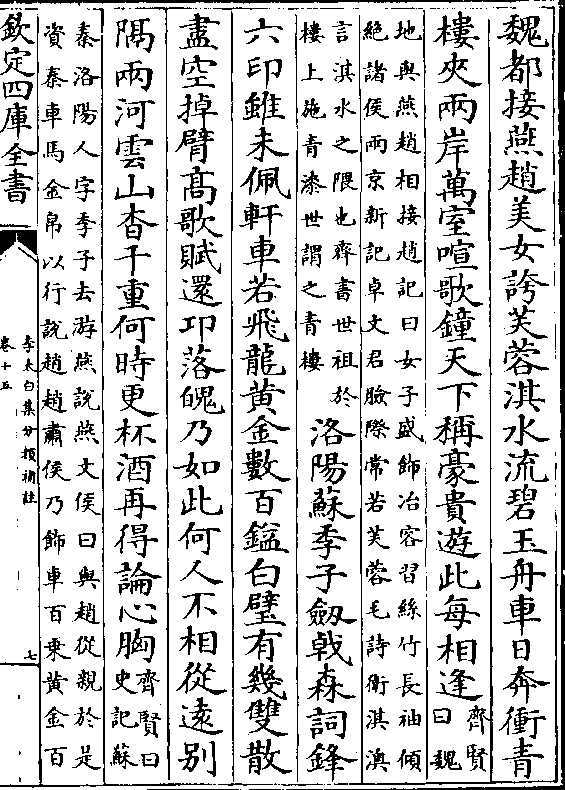 魏都接燕趙美女誇芙蓉淇水流碧玉舟車日奔衝青
樓夾兩岸萬室喧歌鐘天下稱豪貴遊此每相逢齊賢曰魏
地與燕趙相接趙記曰女子盛飾冶容習絲竹長袖傾
絶諸侯西京新記卓文君臉際常若芙蓉毛詩衛淇澳
言淇水之隈也齊書世祖於
樓上施青漆世謂之青樓
洛陽蘇季子劔㦸森詞鋒
六印雖未佩軒車若飛龍黄金數百鎰白璧有幾雙散
盡空掉臂髙歌賦還卭落魄乃如此何人不相從遠别
隔兩河雲山杳千重何時更杯酒再得論心胸齊賢曰史記蘇
秦洛陽人字季子去游燕說燕文侯曰與趙從親於是
資秦車馬金帛以行說趙趙肅侯乃飾車百乗黄金百
欽定四庫全書
李太白集分類補註
卷十五
七